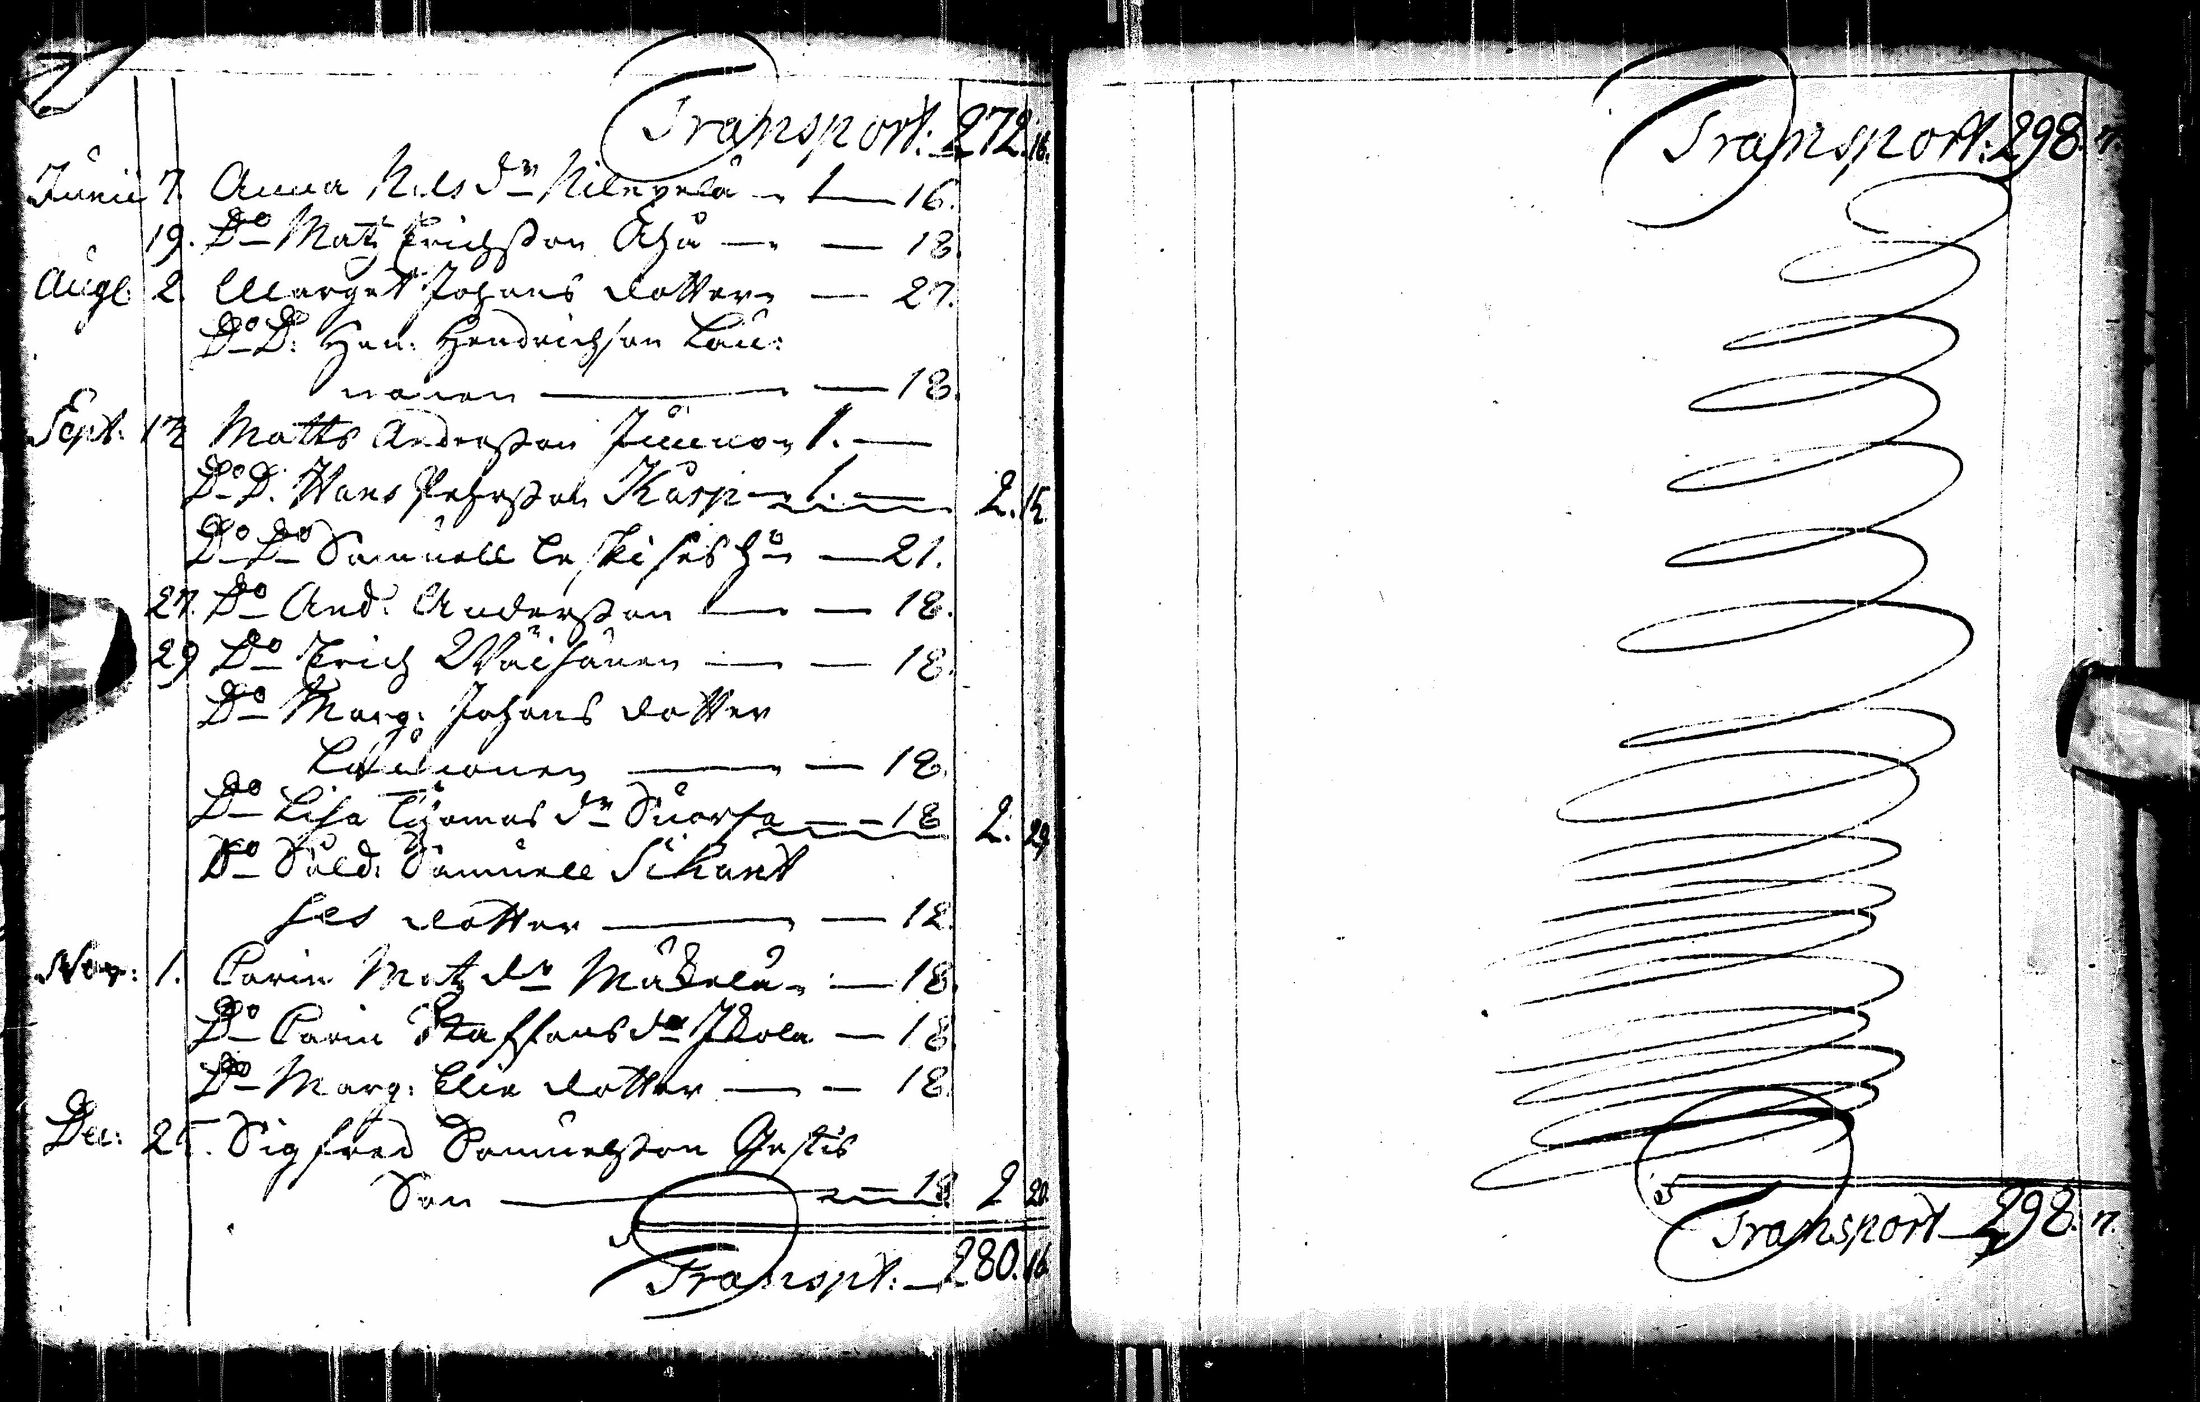 Transport: 272. 16.
Junii 7. Anna Nils dr — 1 — 16.
19. Do Matz Erichsson — 18.
Augt 2. Marget Johans dotter — 27.
Do D: Hen: Hendrichson Lau:
nonen — 18.
Sept: Matts Andersson Junno 1. —
Do D. Hans Pehrsson Kurp 1. — 2. 15.
Do Do Samuell — 21.
27. Do And: Andersson — 18.
29 Do Erich Wäisänen — 18.
Do Marg: Johans dotter
— 18.
Do Lisa Thomas dr Suorsa — 18 2. 29.
Do Sold: Samuell Sikant
ses dotter — 12.
Nov: 1. Carin Matz dr Mäkelä — 18.
Do Carin Staffans dr Ikola — 18
Do Marg: Elie dotter — 18
Dec: 25. Sigfred Samuelsson
Son — 18 2 20.
Transpt: 280. 16.
Transport: 298. 7.
Transport 298. 7.